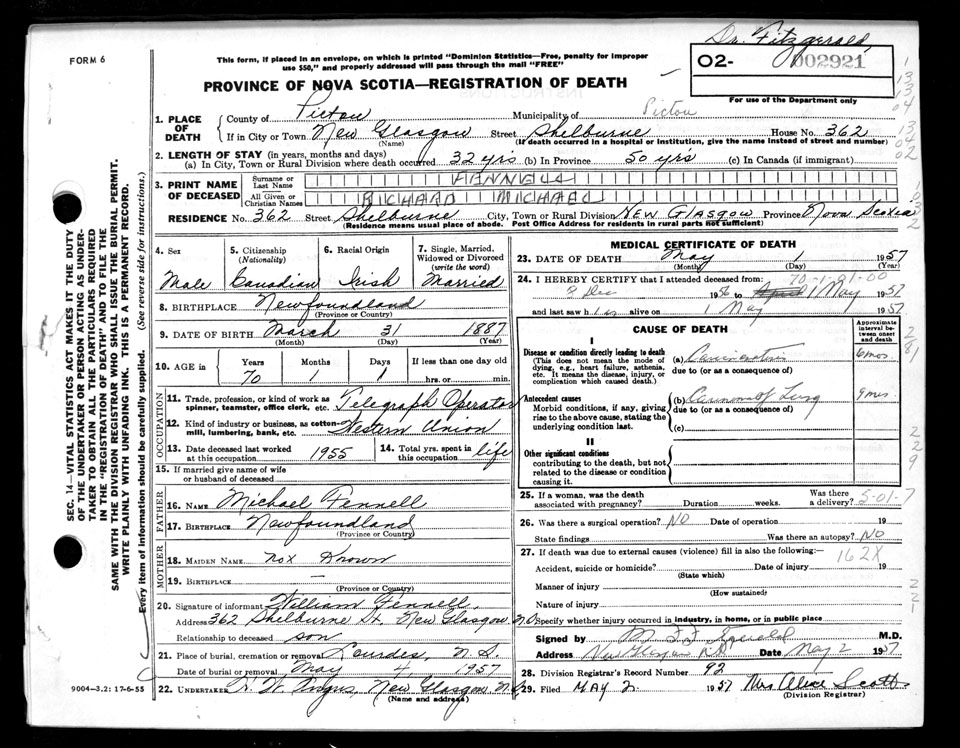 Dr. Fitzgerald,
FORM 6
This form, if placed in an envelope, on which is printed "Dominion Statistics—Free, penalty for improper
use $50," and properly addressed will pass through the mail "FREE"
O2- 002921
PROVINCE OF NOVA SCOTIA—REGISTRATION OF DEATH
For use of the Department only
1. PLACE OF DEATH
County of Pictou Municipality of Pictou
If in City or Town New Glasgow Street Shelburne House No. 362
(Name) (If death occurred in a hospital or institution, give the name instead of street and number)
2. LENGTH OF STAY (in years, months and days)
(a) In City, Town or Rural Division where death occurred 32 yrs (b) In Province 50 yrs (c) In Canada (if immigrant)
3. PRINT NAME OF DECEASED
Surname or Last Name FENNELL
All Given or Christian Names RICHARD MICHAEL
RESIDENCE No. 362 Street Shelburne City, Town or Rural Division New Glasgow Province Nova Scotia
(Residence means usual place of abode. Post Office Address for residents in rural parts not sufficient)
4. Sex Male
5. Citizenship (Nationality) Canadian
6. Racial Origin Irish
7. Single, Married, Widowed or Divorced (write the word) Married
8. BIRTHPLACE Newfoundland
(Province or Country)
9. DATE OF BIRTH March 31 1887
(Month) (Day) (Year)
10. AGE in Years 70 Months 1 Days 1 If less than one day old
hrs. or min.
OCCUPATION
11. Trade, profession, or kind of work as spinner, teamster, office clerk, etc. Telegraph Operator
12. Kind of industry or business, as cotton-mill, lumbering, bank, etc. Western Union
13. Date deceased last worked at this occupation 1955
14. Total yrs. spent in this occupation life
15. If married give name of wife
or husband of deceased
FATHER
16. NAME Michael Fennell
17. BIRTHPLACE Newfoundland
(Province or Country)
MOTHER
18. MAIDEN NAME not known
19. BIRTHPLACE —
(Province or Country)
20. Signature of informant William Fennell
Address 362 Shelburne St. New Glasgow N.S.
Relationship to deceased son
21. Place of burial, cremation or removal Lourdes, N.S.
Date of burial or removal May 4, 1957
22. UNDERTAKER New Glasgow N.S.
(Name and address)
9004-3.2: 17-6-55
MEDICAL CERTIFICATE OF DEATH
23. DATE OF DEATH May 1 1957
(Month) (Day) (Year)
70-1-01-00
24. I HEREBY CERTIFY that I attended deceased from
3 Dec 1956 to April 1 May 1957
and last saw h is alive on 1 May 1957
CAUSE OF DEATH
Approximate interval between onset and death
I
Disease or condition directly leading to death (a) 6 mos.
(This does not mean the mode of dying, e.g., heart failure, asthenia, etc. It means the disease, injury, or complication which caused death.)
due to (or as a consequence of)
Antecedent causes (b) Carcinoma of Lung 9 mos.
Morbid conditions, if any, giving rise to the above cause, stating the underlying condition last.
due to (or as a consequence of)
(c)
II
Other significant conditions
contributing to the death, but not related to the disease or condition causing it.
25. If a woman, was the death associated with pregnancy? Duration weeks. Was there a delivery? 5-01-7
26. Was there a surgical operation? NO Date of operation 19
State findings Was there an autopsy? NO
27. If death was due to external causes (violence) fill in also the following:—
162X
Accident, suicide or homicide? Date of injury 19
(State which)
Manner of injury
(How sustained)
Nature of injury
Specify whether injury occurred in industry, in home, or in public place
Signed by M.D.
Address New Glasgow N.S. Date May 2 1957
28. Division Registrar's Record Number 92
29. Filed MAY 2 1957 Mrs. Alice Scott
(Division Registrar)
SEC. 14—VITAL STATISTICS ACT MAKES IT THE DUTY
OF THE UNDERTAKER OR PERSON ACTING AS UNDER-
TAKER TO OBTAIN ALL THE PARTICULARS REQUIRED
IN THE "REGISTRATION OF DEATH" AND TO FILE THE
SAME WITH THE DIVISION REGISTRAR WHO SHALL ISSUE THE BURIAL PERMIT.
WRITE PLAINLY WITH UNFADING INK. THIS IS A PERMANENT RECORD.
Every item of information should be carefully supplied. (See reverse side for instructions.)